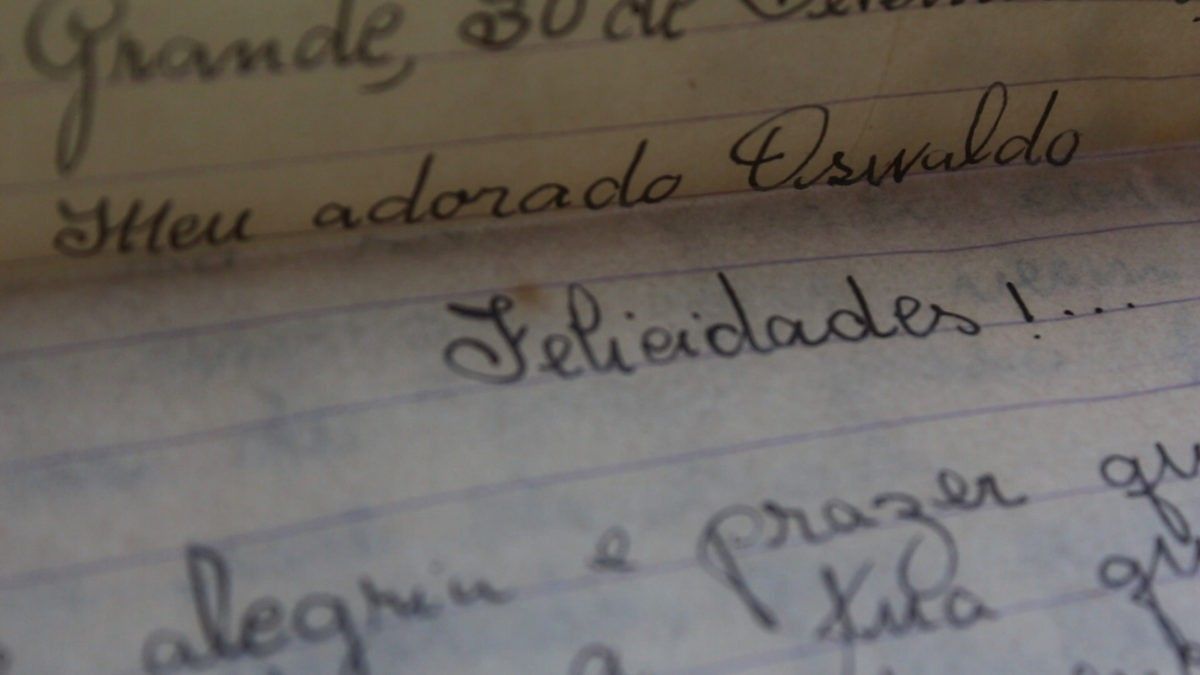 Grande, 30 de
Meu adorado Oswaldo
Felicidades!...
alegria e prazer
tua